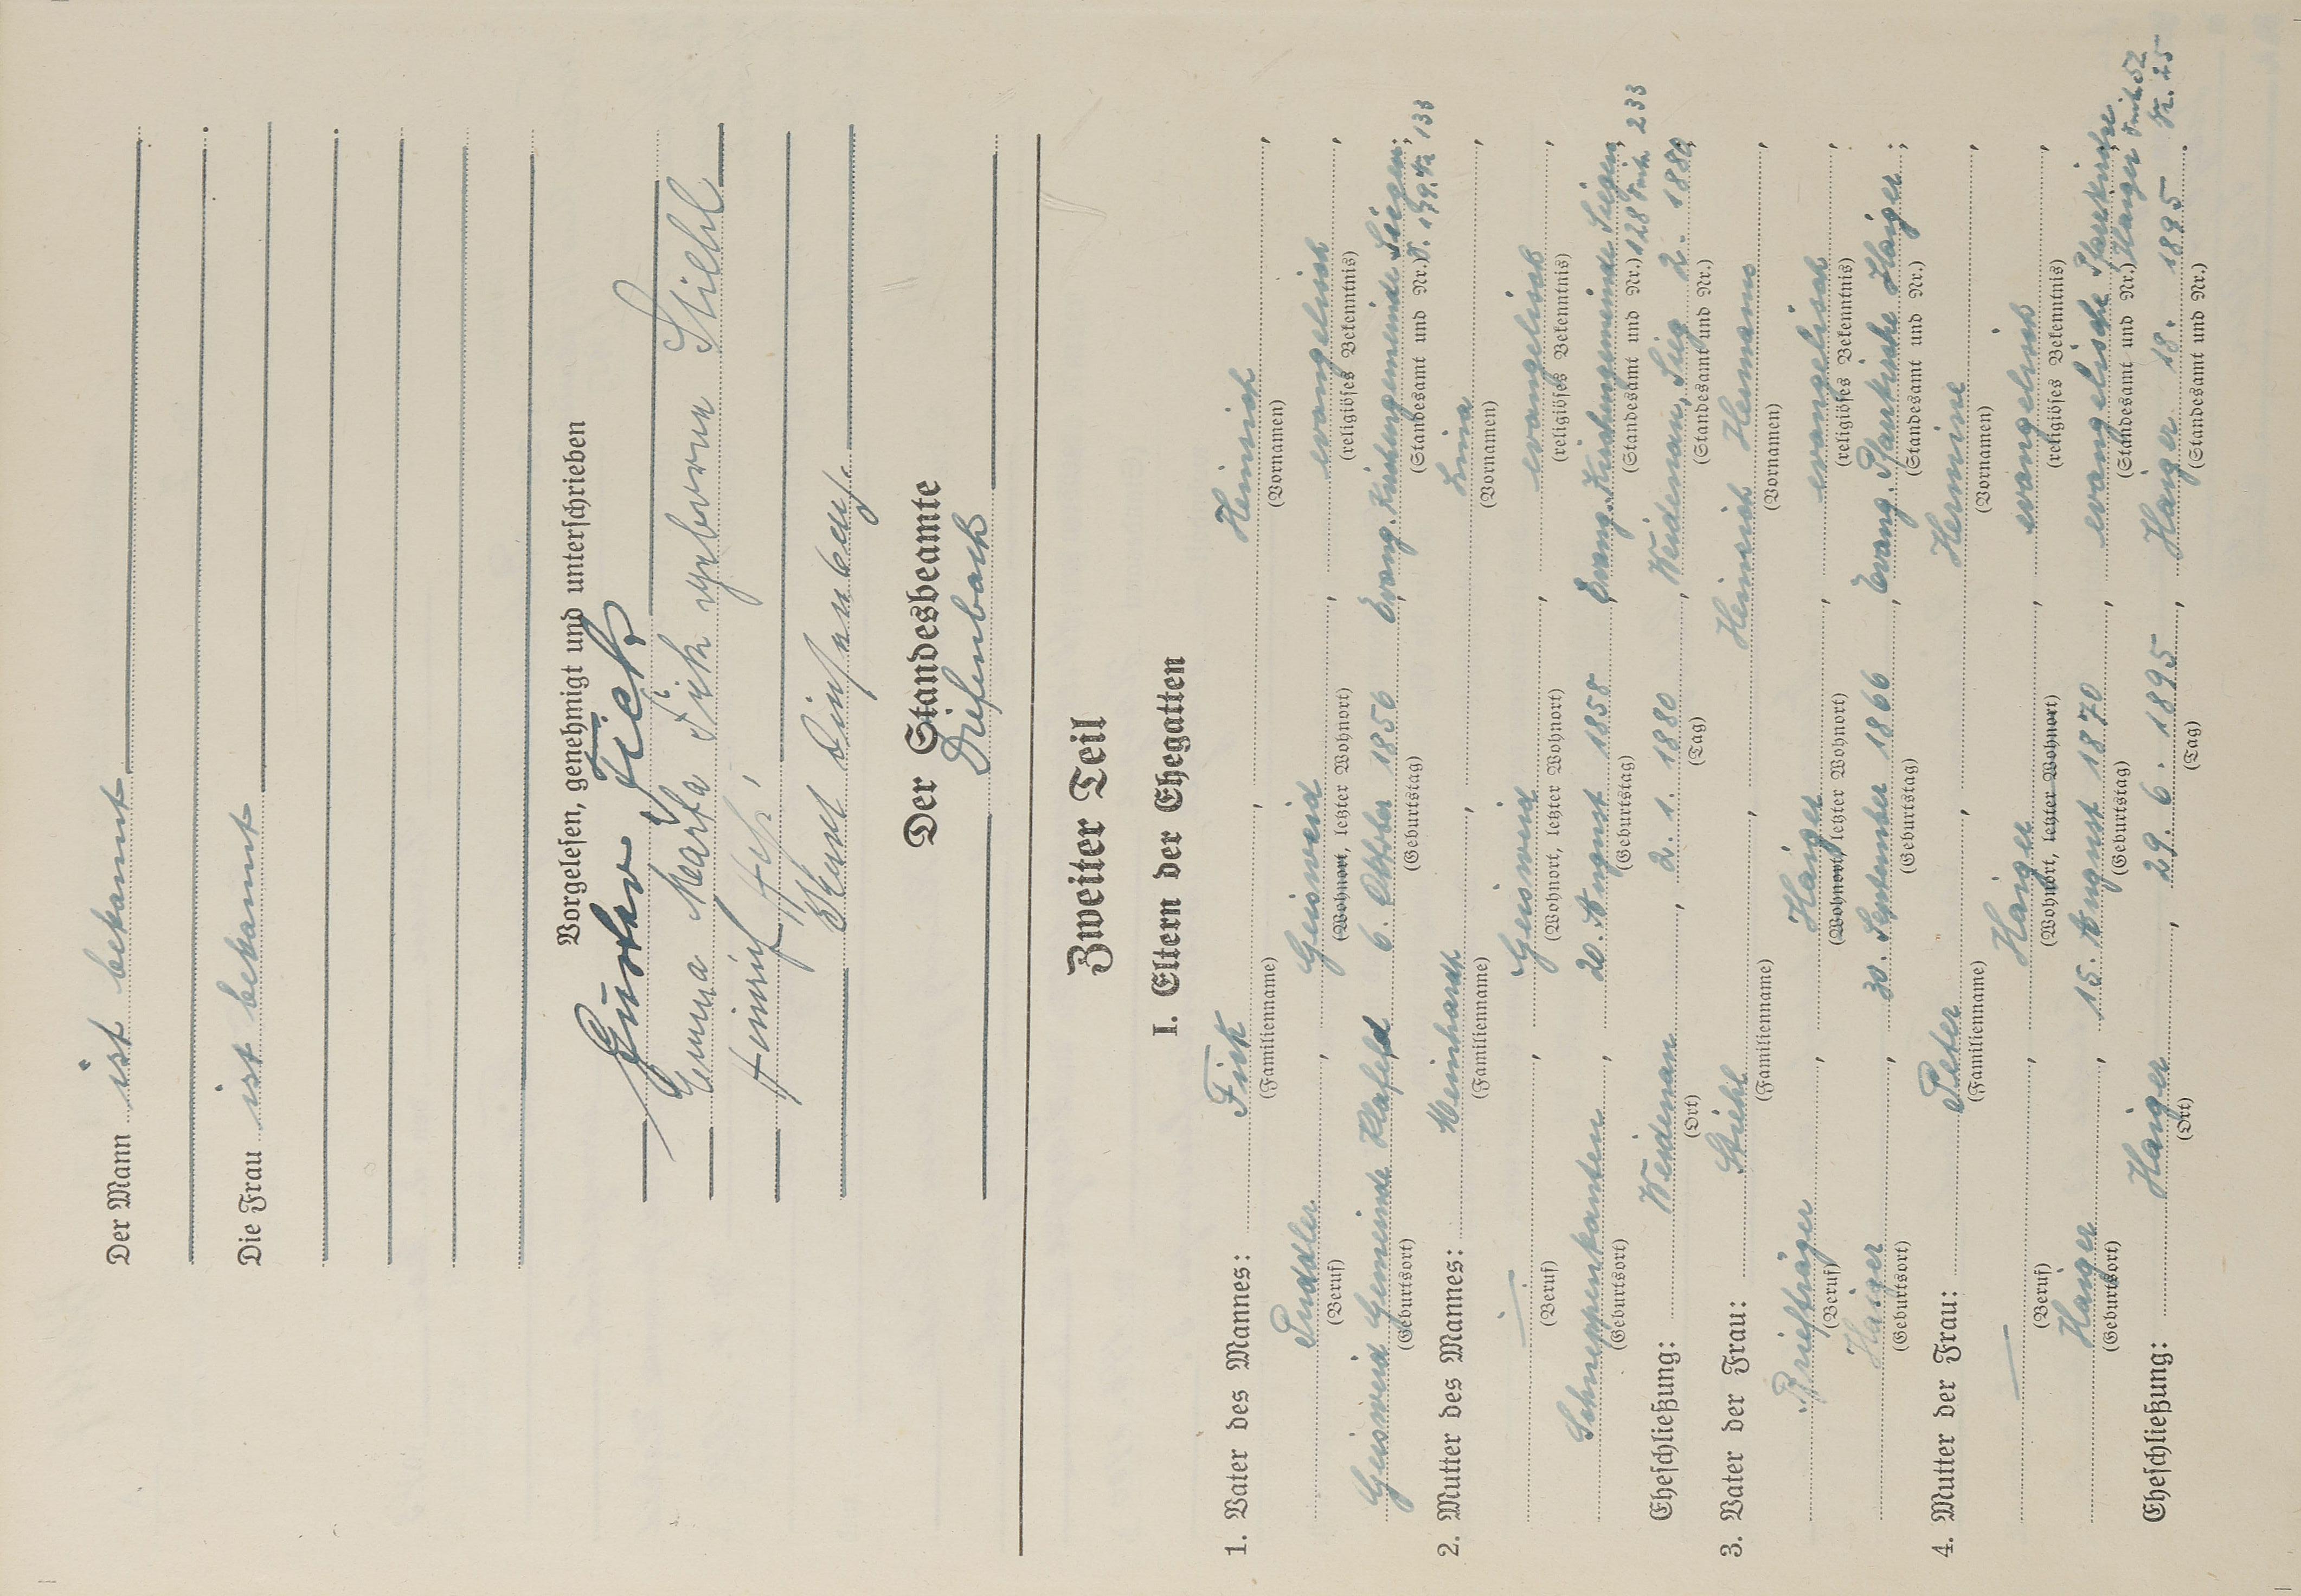 Der Mann ist bekannt
Die Frau ist bekannt
Vorgelesen, genehmigt und unterschrieben
Gustav Fick
Emma Marta Fick geborene Stiehl
Heinrich
Der Standesbeamte
Diefenbach
Zweiter Teil
I. Eltern der Ehegatten
1. Vater des Mannes: Fick, Heinrich,
(Familienname) (Vornamen)
Puddler, Geisweid, evangelisch,
(Beruf) (Wohnort, letzter Wohnort) (religiöses Bekenntnis)
Geisweid Gemeinde Klafeld 6. Oktober 1850 Evang. Kirchengemeinde Siegen;
(Geburtsort) (Geburtstag) (Standesamt und Nr.) 133
2. Mutter des Mannes: Weinhardt, Lina,
(Familienname) (Vornamen)
—, Geisweid, evangelisch,
(Beruf) (Wohnort, letzter Wohnort) (religiöses Bekenntnis)
Schneppenkauten, 20. August 1858 Evang. Kirchengemeinde Siegen,
(Geburtsort) (Geburtstag) (Standesamt und Nr.) 128 233
Eheschließung: Weidenau, 2. 1. 1880, Weidenau, Sieg 2. 1880,
(Ort) (Tag) (Standesamt und Nr.)
3. Vater der Frau: Stiehl, Heinrich Hermann,
(Familienname) (Vornamen)
Briefträger, Haiger, evangelisch,
(Beruf) (Wohnort, letzter Wohnort) (religiöses Bekenntnis)
Haiger, 30. September 1866, Evang. Pfarrkirche Haiger;
(Geburtsort) (Geburtstag) (Standesamt und Nr.)
4. Mutter der Frau: Peter, Hermine,
(Familienname) (Vornamen)
—, Haiger, evangelisch,
(Beruf) (Wohnort, letzter Wohnort) (religiöses Bekenntnis)
Haiger, 15. August 1870, evangelische Pfarrkirche
(Geburtsort) (Geburtstag) (Standesamt und Nr.) Haiger 52
Eheschließung: Haiger, 29. 6. 1895, Haiger 18. 1895. Nr. 25
(Ort) (Tag) (Standesamt und Nr.)